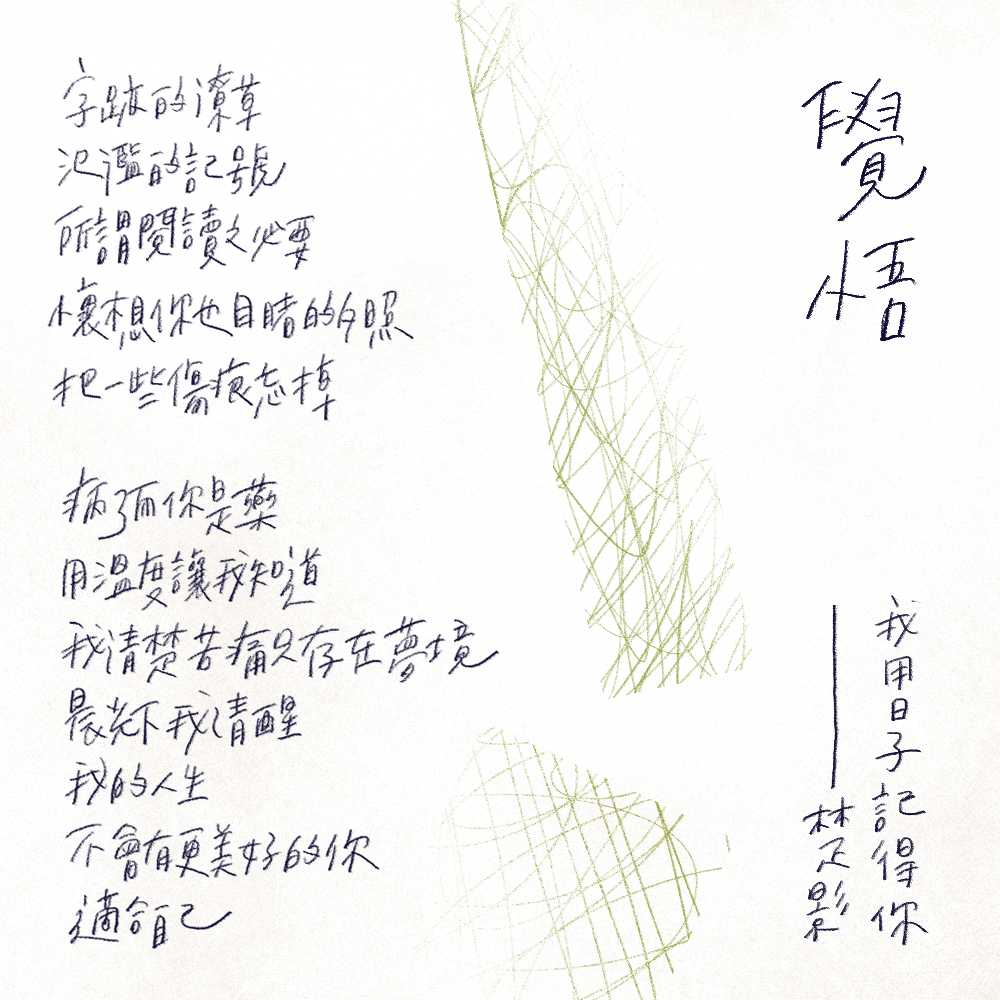 覺悟
字跡的潦草
氾濫的記號
所謂閱讀之必要
懷想你也目睹的夕照
把一些傷痕忘掉
病了而你是藥
用溫度讓我知道
我清楚苦痛只存在夢境
晨光下我清醒
我的人生
不會有更美好的你
適合自己
我用日子記得你
——楚影